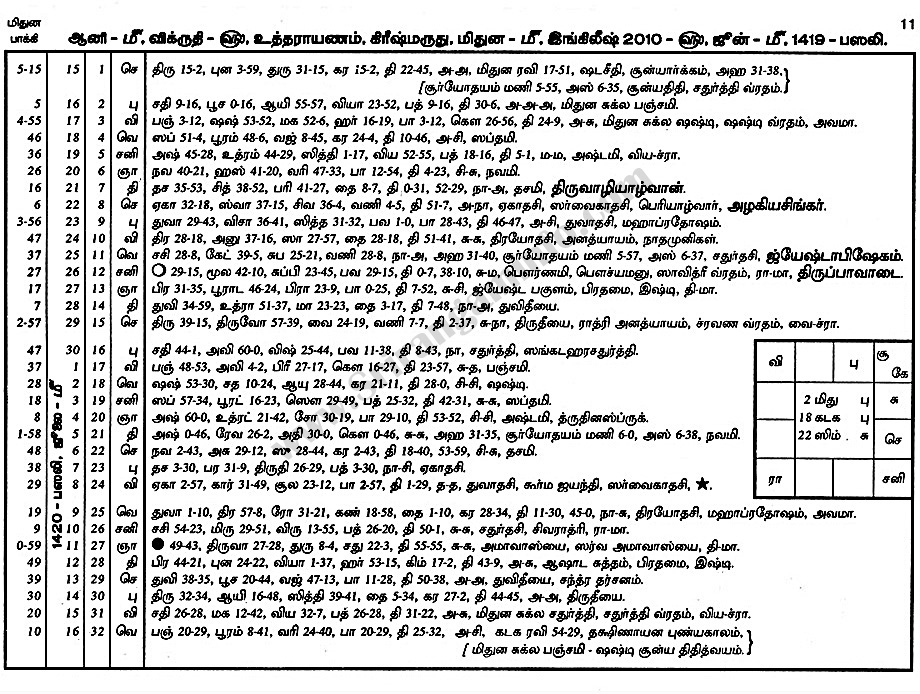 மிதுன பாக்கி ஆனி - மீ, விக்ருதி - ௵, உத்தராயணம், கிரீஷ்மருது, மிதுன - மீ, இங்கிலீஷ் 2010 - ௵, ஜூன் - மீ, 1419 - பஸலி. 11
5-15 15 1 செ திரு 15-2, புன 3-59, துரு 31-15, கர 15-2, தி 22-45, அ-அ, மிதுன ரவி 17-51, ஷடசீதி, சூன்யார்க்கம், அஹ 31-38,
[சூர்யோதயம் மணி 5-55, அஸ் 6-35, சூன்யதிதி, சதுர்த்தி வ்ரதம்.
5 16 2 பு சதி 9-16, பூச 0-16, ஆயி 55-57, வியா 23-52, பத் 9-16, தி 30-6, அ-அ-அ, மிதுன சுக்ல பஞ்சமி.
4-55 17 3 வி பஞ் 3-12, ஷஷ் 53-52, மக 52-6, ஹர் 16-19, பா 3-12, கௌ 26-56, தி 24-9, அ-சு, மிதுன சுக்ல ஷஷ்டி, ஷஷ்டி வ்ரதம், அவமா.
46 18 4 வெ ஸப் 51-4, பூரம் 48-6, வஜ் 8-45, கர 24-4, தி 10-46, அ-சி, ஸப்தமி.
36 19 5 சனி அஷ் 45-28, உத்ரம் 44-29, ஸித்தி 1-17, விய 52-55, பத் 18-16, தி 5-1, ம-ம, அஷ்டமி, விய-ச்ரா.
26 20 6 ஞா நவ 40-21, ஹஸ் 41-20, வரி 47-33, பா 12-54, தி 4-23, சி-சு, நவமி.
16 21 7 தி தச 35-53, சித் 38-52, பரி 41-27, தை 8-7, தி 0-31, 52-29, நா-அ, தசமி, திருவாழியாழ்வான்.
6 22 8 செ ஏகா 32-18, ஸ்வா 37-15, சிவ 36-4, வணி 4-5, தி 51-7, அ-நா, ஏகாதசி, ஸர்வைகாதசி, பெரியாழ்வார், அழகியசிங்கர்.
3-56 23 9 பு துவா 29-43, விசா 36-41, ஸித்த 31-32, பவ 1-0, பா 28-43, தி 46-47, அ-சி, துவாதசி, மஹாப்ரதோஷம்.
47 24 10 வி திர 28-18, அனு 37-16, ஸா 27-57, தை 28-18, தி 51-41, சு-சு, திரயோதசி, அனத்யாயம், நாதமுனிகள்.
37 25 11 வெ சசி 28-8, கேட் 39-5, சுப 25-21, வணி 28-8, நா-அ, அஹ 31-40, சூர்யோதயம் மணி 5-57, அஸ் 6-37, சதுர்தசி, ஜ்யேஷ்டாபிஷேகம்.
27 26 12 சனி ○ 29-15, மூல 42-10, சுப்பி 23-45, பவ 29-15, தி 0-7, 38-10, சு-ம, பௌர்ணமி, பௌச்யமனு, ஸாவித்ரீ வ்ரதம், ரா-மா, திருப்பாவாடை.
17 27 13 ஞா பிர 31-35, பூராட 46-24, பிரா 23-9, பா 0-25, தி 7-52, சு-சி, ஜ்யேஷ்ட பகுளம், பிரதமை, இஷ்டி, தி-மா.
7 28 14 தி துவி 34-59, உத்ரா 51-37, மா 23-23, தை 3-17, தி 7-48, நா-அ, துவிதீயை.
2-57 29 15 செ திரு 39-15, திருவோ 57-39, வை 24-19, வணி 7-7, தி 2-37, சு-நா, திருதீயை, ராத்ரி அனத்யாயம், ச்ரவண வ்ரதம், வை-ச்ரா.
47 30 16 பு சதி 44-1, அவி 60-0, விஷ் 25-44, பவ 11-38, தி 8-43, நா, சதுர்த்தி, ஸங்கடஹரசதுர்த்தி.
37 1 17 வி பஞ் 48-53, அவி 4-2, பிரி 27-17, கௌ 16-27, தி 23-57, சு-த, பஞ்சமி.
28 2 18 வெ ஷஷ் 53-30, சத 10-24, ஆயு 28-44, கர 21-11, தி 28-0, சி-சி, ஷஷ்டி.
18 3 19 சனி ஸப் 57-34, பூரட் 16-23, ஸௌ 29-49, பத் 25-32, தி 42-31, சு-சு, ஸப்தமி.
8 4 20 ஞா அஷ் 60-0, உத்ரட் 21-42, சோ 30-19, பா 29-10, தி 53-52, சி-சி, அஷ்டமி, த்ருதினஸ்ப்ருக்.
1-58 5 21 தி அஷ் 0-46, ரேவ 26-2, அதி 30-0, கௌ 0-46, சு-சு, அஹ 31-35, சூர்யோதயம் மணி 6-0, அஸ் 6-38, நவமி.
48 6 22 செ நவ 2-43, அசு 29-12, ஸு 28-44, கர 2-43, தி 18-40, 53-59, சி-சு, தசமி.
38 7 23 பு தச 3-30, பர 31-9, திருதி 26-29, பத் 3-30, நா-சி, ஏகாதசி.
29 8 24 வி ஏகா 2-57, கார் 31-49, சூல 23-12, பா 2-57, தி 1-29, த-த, துவாதசி, கூர்ம ஜயந்தி, ஸர்வைகாதசி, ★.
1420 - பஸலி, ஜூலை - மீ
வி பு சூ கே
2 மிது பு சு
18 கடக பு
22 ஸிம் . சு செ
ரா சனி
19 9 25 வெ துவா 1-10, திர 57-8, ரோ 31-21, கண் 18-58, தை 1-10, கர 28-34, தி 11-30, 45-0, நா-சு, திரயோதசி, மஹாப்ரதோஷம், அவமா.
9 10 26 சனி சசி 54-23, மிரு 29-51, விரு 13-55, பத் 26-20, தி 50-1, சு-சு, சதுர்தசி, சிவராத்ரி, ரா-மா.
0-59 11 27 ஞா ● 49-43, திருவா 27-28, துரு 8-4, சது 22-3, தி 55-55, சு-சு, அமாவாஸ்யை, ஸர்வ அமாவாஸ்யை, தி-மா.
49 12 28 தி பிர 44-21, புன 24-22, வியா 1-37, ஹர் 53-15, கிம் 17-2, தி 43-9, அ-சு, ஆஷாட சுத்தம், பிரதமை, இஷ்டி.
39 13 29 செ துவி 38-35, பூச 20-44, வஜ் 47-13, பா 11-28, தி 50-38, அ-அ, துவிதீயை, சந்த்ர தர்சனம்.
30 14 30 பு திரு 32-34, ஆயி 16-48, ஸித்தி 39-41, தை 5-34, கர 27-2, தி 44-45, அ-அ, திருதீயை.
20 15 31 வி சதி 26-28, மக 12-42, விய 32-7, பத் 26-28, தி 31-22, அ-சு, மிதுன சுக்ல சதுர்த்தி, சதுர்த்தி வ்ரதம், விய-ச்ரா.
10 16 32 வெ பஞ் 20-29, பூரம் 8-41, வரி 24-40, பா 20-29, தி 25-32, அ-சி, கடக ரவி 54-29, தக்ஷிணாயன புண்யகாலம்,
[ மிதுன சுக்ல பஞ்சமி - ஷஷ்டி சூன்ய திதித்வயம்.